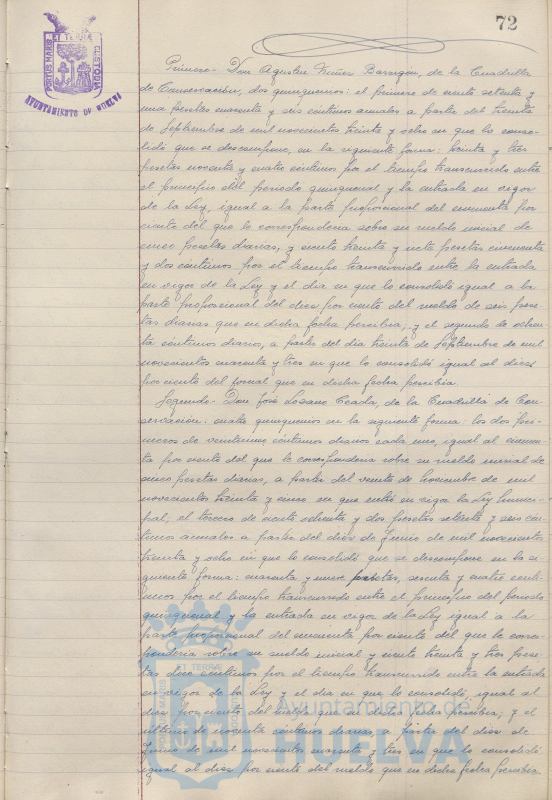 72
PORTUS MARIS ET TERRÆ CUSTODIA
AYUNTAMIENTO DE HUELVA
Primero - Don Agustin Nuñez Barragan, de la Cuadrilla
de Conservacion, dos quinquenios: el primero de ciento setenta y
una pesetas cuarenta y seis centimos anuales a partir del treinta
de Septiembre de mil novecientos treinta y ocho en que lo conso-
lidó que se descompone, en la siguiente forma: treinta y tres
pesetas noventa y cuatro centimos por el tiempo transcurrido entre
el principio del periodo quinquenal y la entrada en vigor
de la Ley, igual a la parte proporcional del cincuenta por
ciento del que le correspondería sobre su sueldo inicial de
cinco pesetas diarias, y ciento treinta y siete pesetas cincuenta
y dos centimos por el tiempo transcurrido entre la entrada
en vigor de la Ley y el dia en que lo consolidó igual a la
parte proporcional del diez por ciento del sueldo de seis pese-
tas diarias que en dicha fecha percibia, y el segundo de ochen-
ta centimos diarios, a partir del dia treinta de Septiembre de mil
novecientos cuarenta y tres en que lo consolidó igual al diez
por ciento del jornal que en dicha fecha percibia.
Segundo - Don José Lozano Ceada, de la Cuadrilla de Con-
servacion: cuatro quinquenios en la siguiente forma: los dos pri-
meros de veinticinco centimos diarios cada uno, igual al cincuen-
ta por ciento del que le correspondería sobre su sueldo inicial de
cinco pesetas diarias, a partir del veinte de Noviembre de mil
novecientos treinta y cinco en que entró en vigor la Ley Munici-
pal; el tercero de ciento ochenta y dos pesetas setenta y seis cen-
timos anuales a partir del diez de Junio de mil novecientos
treinta y ocho en que lo consolidó que se descompone en la si-
guiente forma: cuarenta y nueve pesetas, sesenta y cuatro centi-
mos por el tiempo transcurrido entre el principio del periodo
quinquenal y la entrada en vigor de la Ley igual a la
parte proporcional del cincuenta por ciento del que le corres-
pondería sobre su sueldo inicial y ciento treinta y tres pese-
tas doce centimos por el tiempo transcurrido entre la entrada
en vigor de la Ley y el dia en que lo consolidó, igual al
diez por ciento del sueldo que en dicha fecha percibia; y el
ultimo de noventa centimos diarios, a partir del diez de
Junio de mil novecientos cuarenta y tres en que lo consolidó
igual al diez por ciento del sueldo que en dicha fecha percibia.
Ayuntamiento de
HUELVA